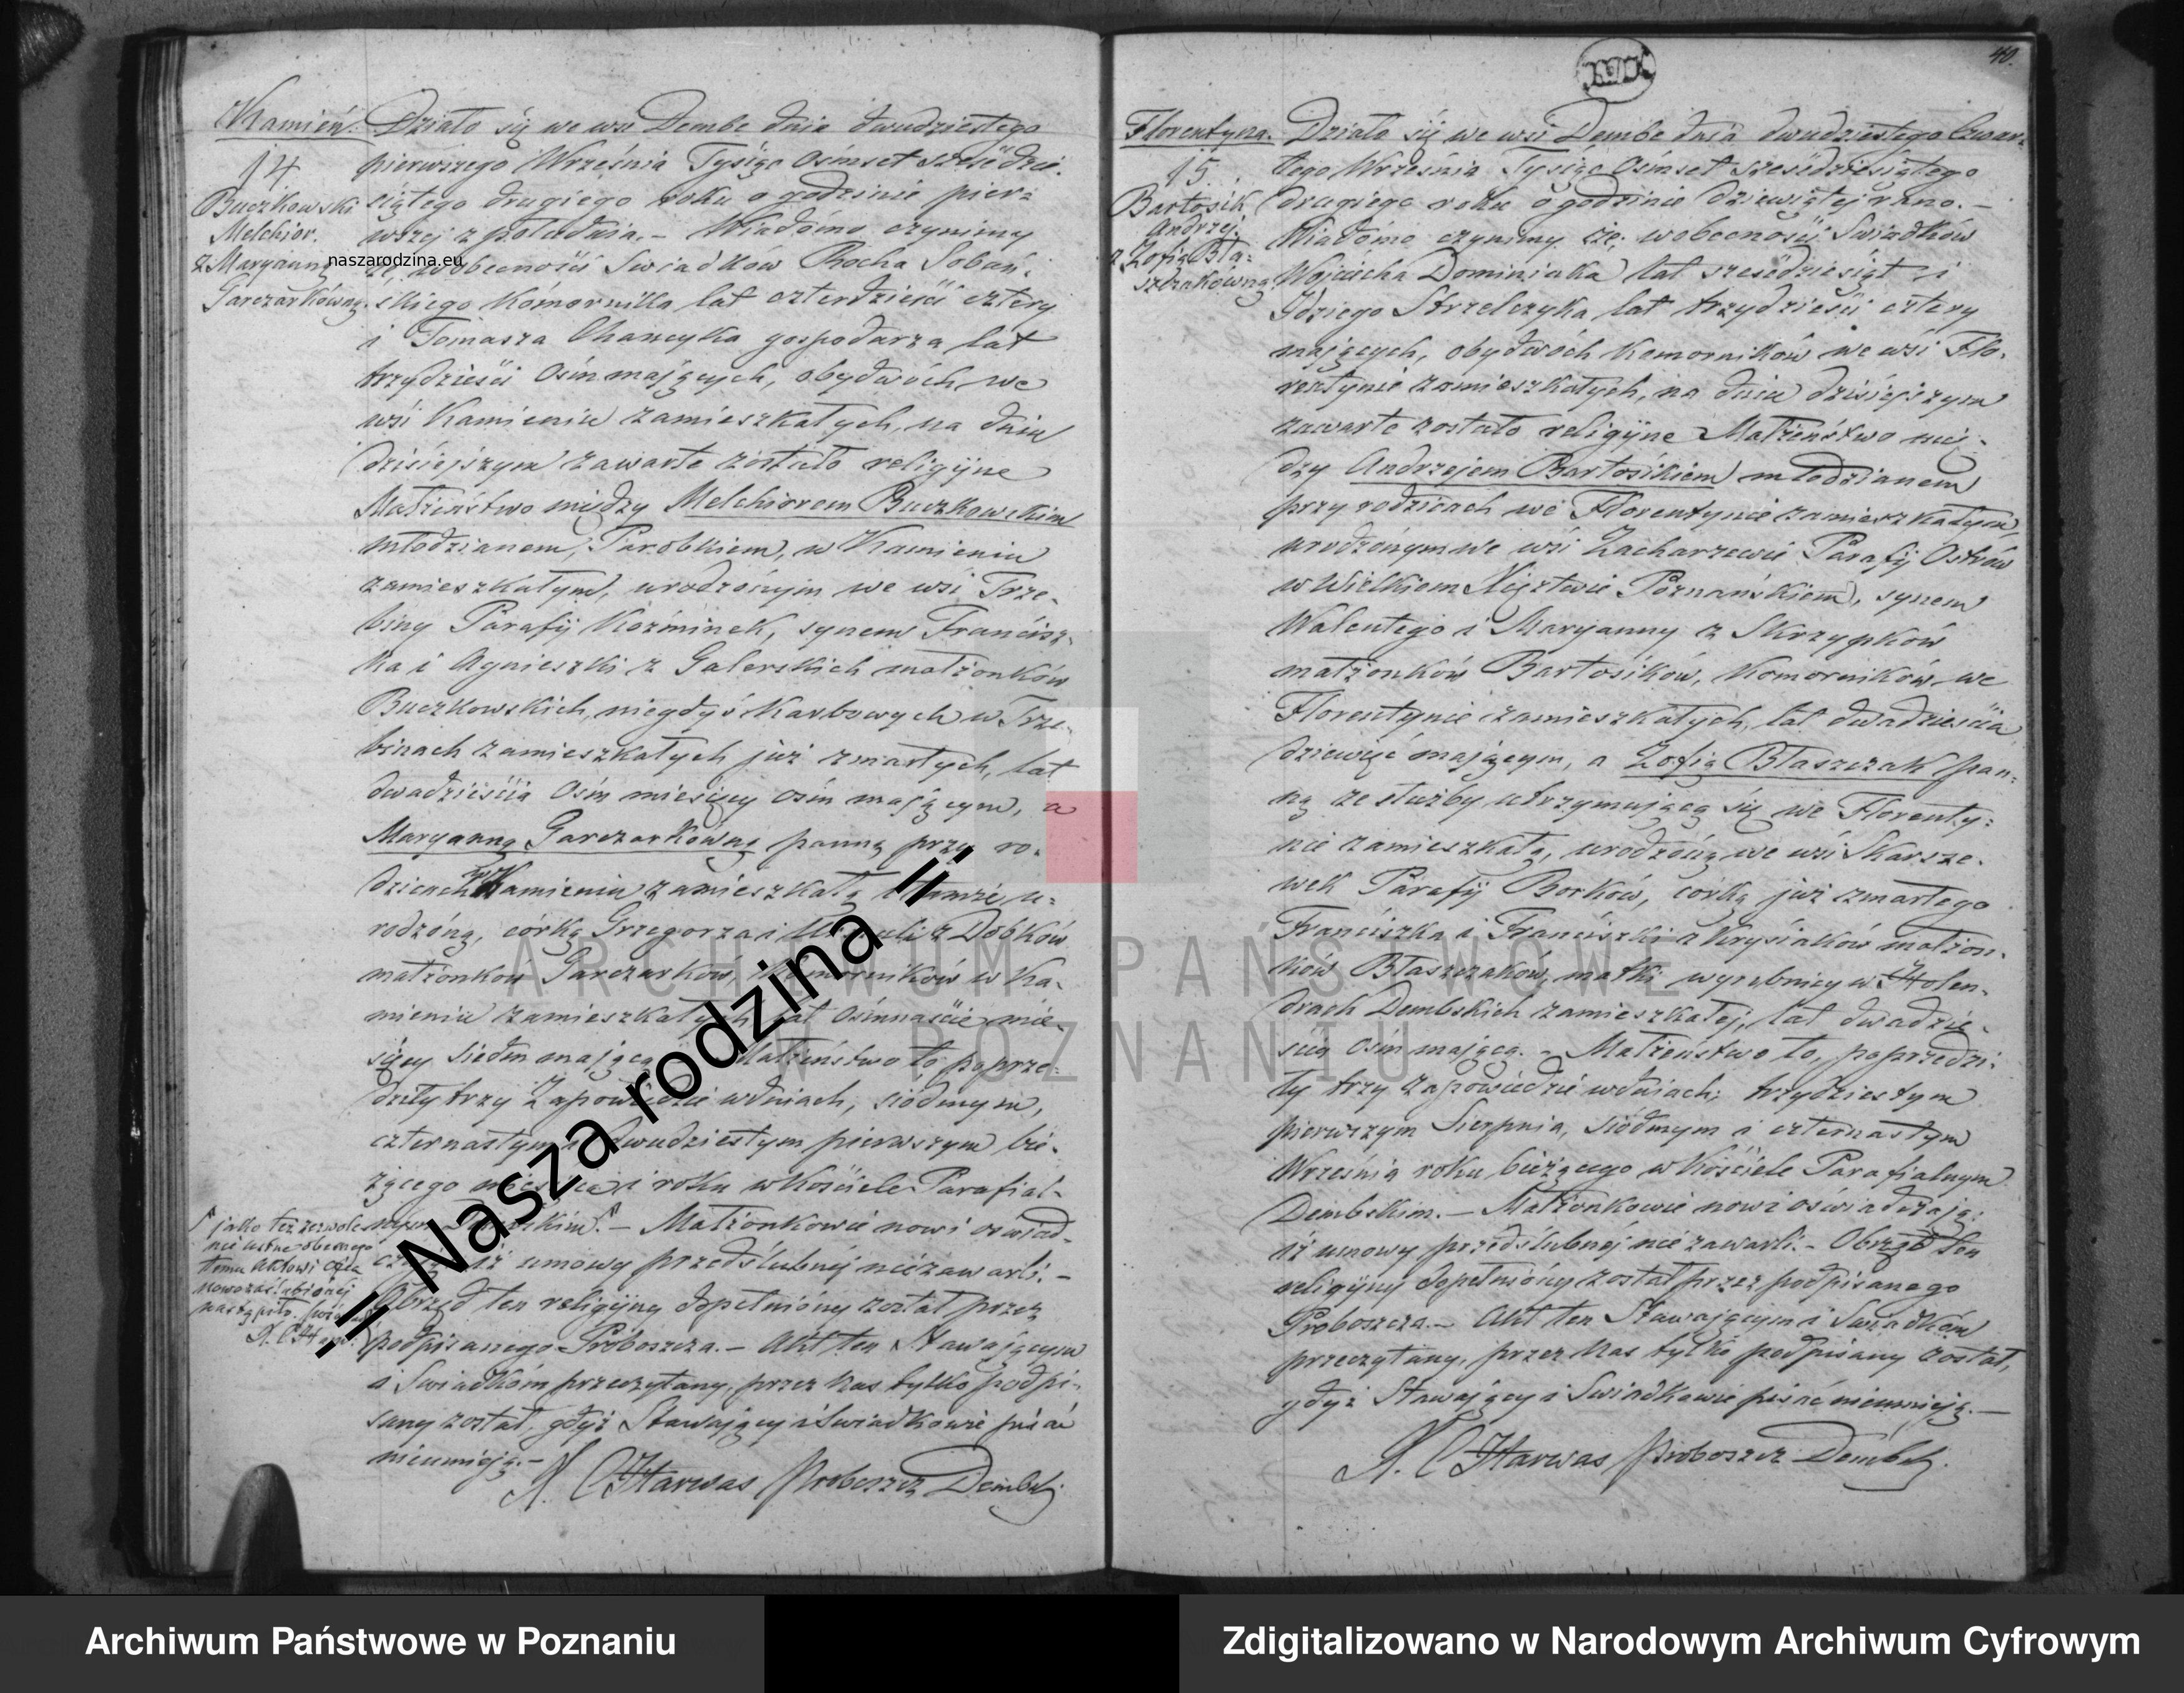 Kamień.
14
Buczkowski
Melchior.
z Maryanną
Garczarkówną.
Działo się we wsi Dembe dnia dwudziestego
pierwszego Września Tysiąc Ośmset sześćdzie-
siątego drugiego roku o godzinie pier=
wszej z południa. – Wiadómo czynimy
że, wobecności Swiadków Rocha Sobań-
skiego Kómornika lat czterdzieści cztery
i Tomasza gospodarza lat
trzydzieści Ośm mających, obydwóch we
wsi Kamieniu zamieszkałych, na dniu
dzisiejszym zawarte zostało religijne
Małżeństwo między Melchiorem Buczkowskim
młodzianem, Parobkiem, w Kamieniu
zamieszkałym, urodzónym we wsi Trze-
biny Parafij Koźminek, synem Francisz-
ka i Agnieszki z Galerskich małżonków
Buczkowskich, niegdyś Karbowych w Trze-
binach zamieszkałych już zmarłych, lat
dwadzieścia Ośm miesięcy ośm mającym, a
Maryanną Garczarkówną panną przy ro-
dzicach w Kamieniu zamieszkałą i tamże u=
rodzóną, córką Grzegorza i z Dobków
małżonków Garczarków, Komorników w Ka-
mieniu zamieszkałych lat Ośmnaście mie-
sięcy siedm mającą – Małżeństwo to poprze-
dziły trzy Zapowiedzie w dniach, siódmym,
czternastym i dwudziestym pierwszym bie-
żącego miesiąca i roku w Kościele Parafial-
nym Dembskim. – Małżonkowie nowi oświad-
czają iż umowy przedślubnéj nie zawarli. –
Obrzęd ten religijny dopełnióny został przez
podpisanego Proboszcza. – Akt ten Stawającym
i Swiadkóm przeczytany, przez Nas tylko podpi-
sany został, gdyż Stawający i Swiadkowie pisać
nieumieją. –
jako też zezwole
nie ustne obecnego
temu Aktowi Ojca
nowozaślubionéj
nastąpiło.
Proboszcz Dembski
40.
Florentyna.
15.
Bartosik
Andrzéj.
z Zofią Bła=
szczakówną
Działo się we wsi Dembe dnia dwudziestego Czwar-
tego Września Tysiąc Ośmset sześćdziesiątego
drugiego roku o godzinie dziewiątej rano. –
Wiadómo czynimy że; wobecności Swiadków
Wojciecha Dominiaka lat sześćdziesiąt i
Idziego Strzelczyka lat trzydzieści cztery
mających, obydwóch Komorników we wsi Flo-
rentynie zamieszkałych, na dniu dzisiejszym
zawarte zostało religijne Małżeństwo mię-
dzy Andrzejem Bartosikiem młodzianem
przy rodzicach we Florentynie zamieszkałym,
urodzónym we wsi Zacharzewie Parafij Ostrów
w Wielkiem Xięztwie Poznańskiem, synem
Walentego i Maryanny z Skrzypków
małżonków Bartosików, Komorników we
Florentynie zamieszkałych, lat dwadzieścia
dziewięć mającym, a Zofią Błaszczak pan-
ną ze służby utrzymującą się we Florenty=
nie zamieszkałą, urodzóną we wsi Skarsze-
wek Parafij Borków, córką już zmarłego
Franciszka i Franciszki z Krysiaków małżon-
ków Błaszczaków, matki wyrobnicy w Holen-
drach Dembskich zamieszkałej, lat dwadzie-
ścia Ośm mającą. – Małżeństwo to, poprzedzi-
ły trzy Zapowiedzie w dniach; trzydziestym
pierwszym Sierpnia, siódmym i czternastym
Września roku bieżącego w Kościele Parafialnym
Dembskim. – Małżonkowie nowi oświadczają;
iż umowy przedślubnéj nie zawarli. – Obrzęd ten
religijny dopełnióny został przez podpisanego
Proboszcza. – Akt ten Stawającym i Swiadkóm
przeczytany, przez Nas tylko podpisany został,
gdyż Stawający i Swiadkowie pisać nieumieją. –
Proboszcz Dembski
naszarodzina.eu
= Nasza rodzina =
ARCHIWUM PAŃSTWOWE
W POZNANIU
Archiwum Państwowe w Poznaniu
Zdigitalizowano w Narodowym Archiwum Cyfrowym